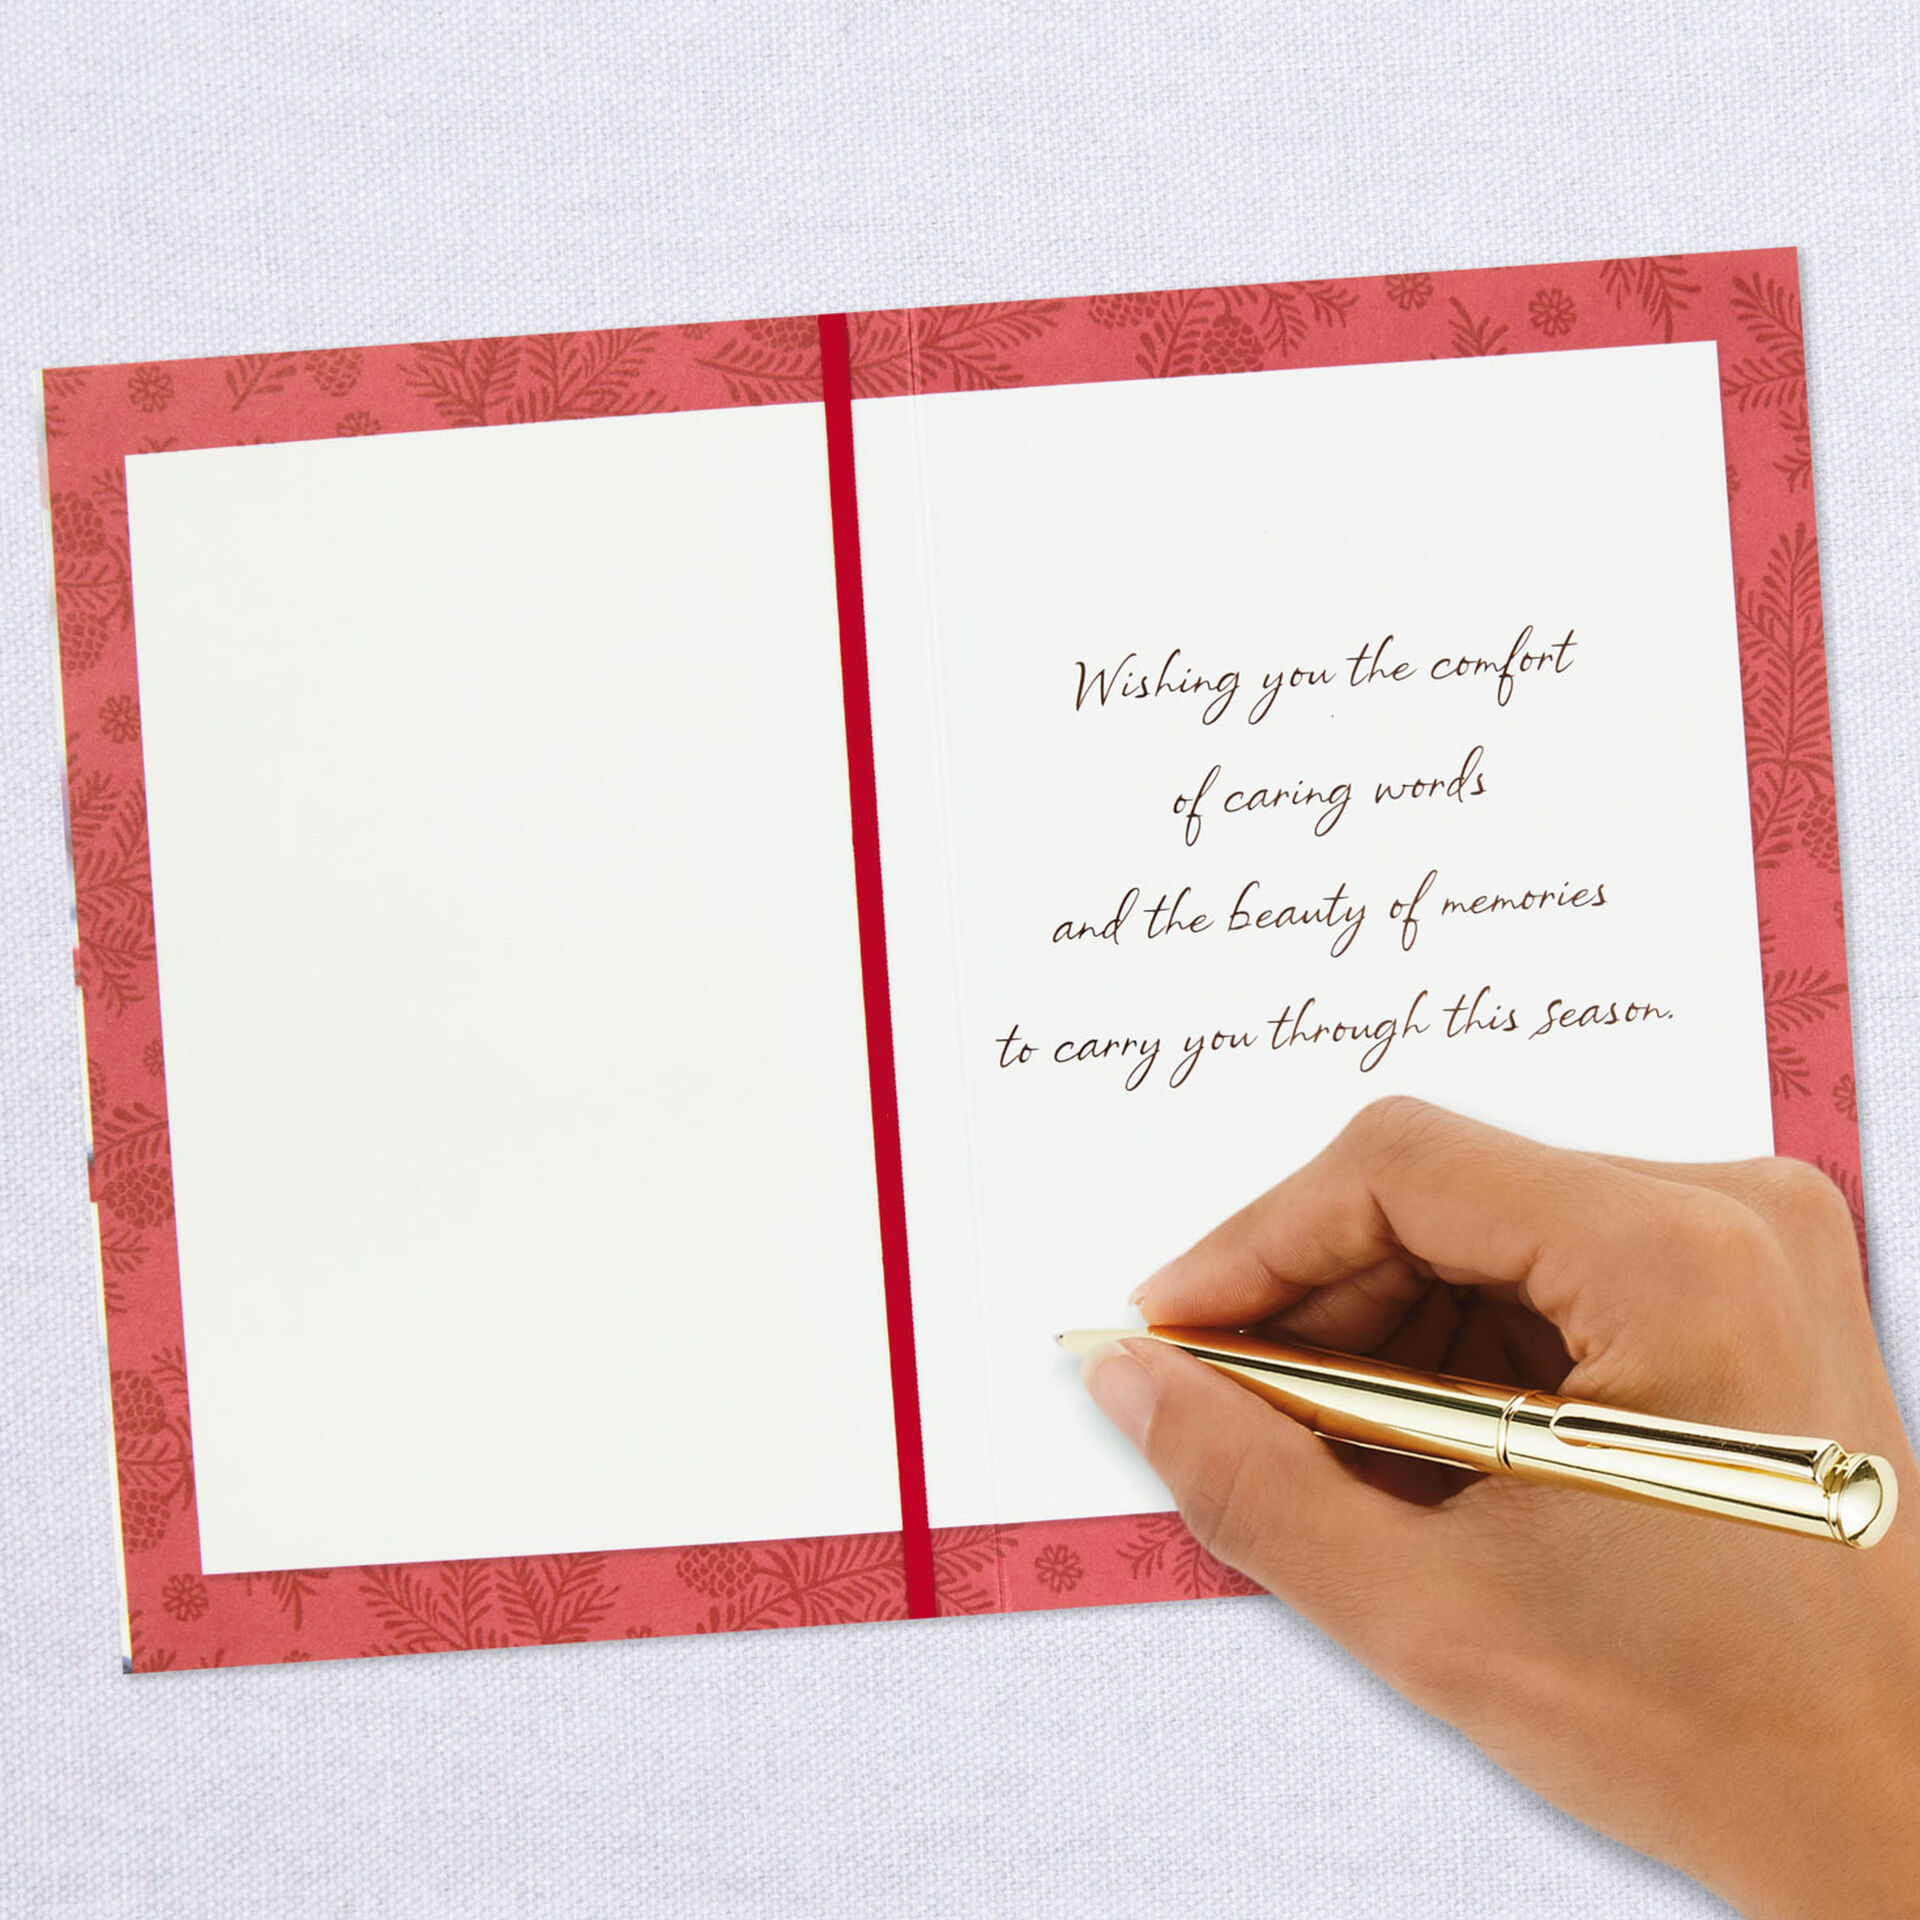 Wishing you the comfort
of caring words
and the beauty of memories
to carry you through this season.